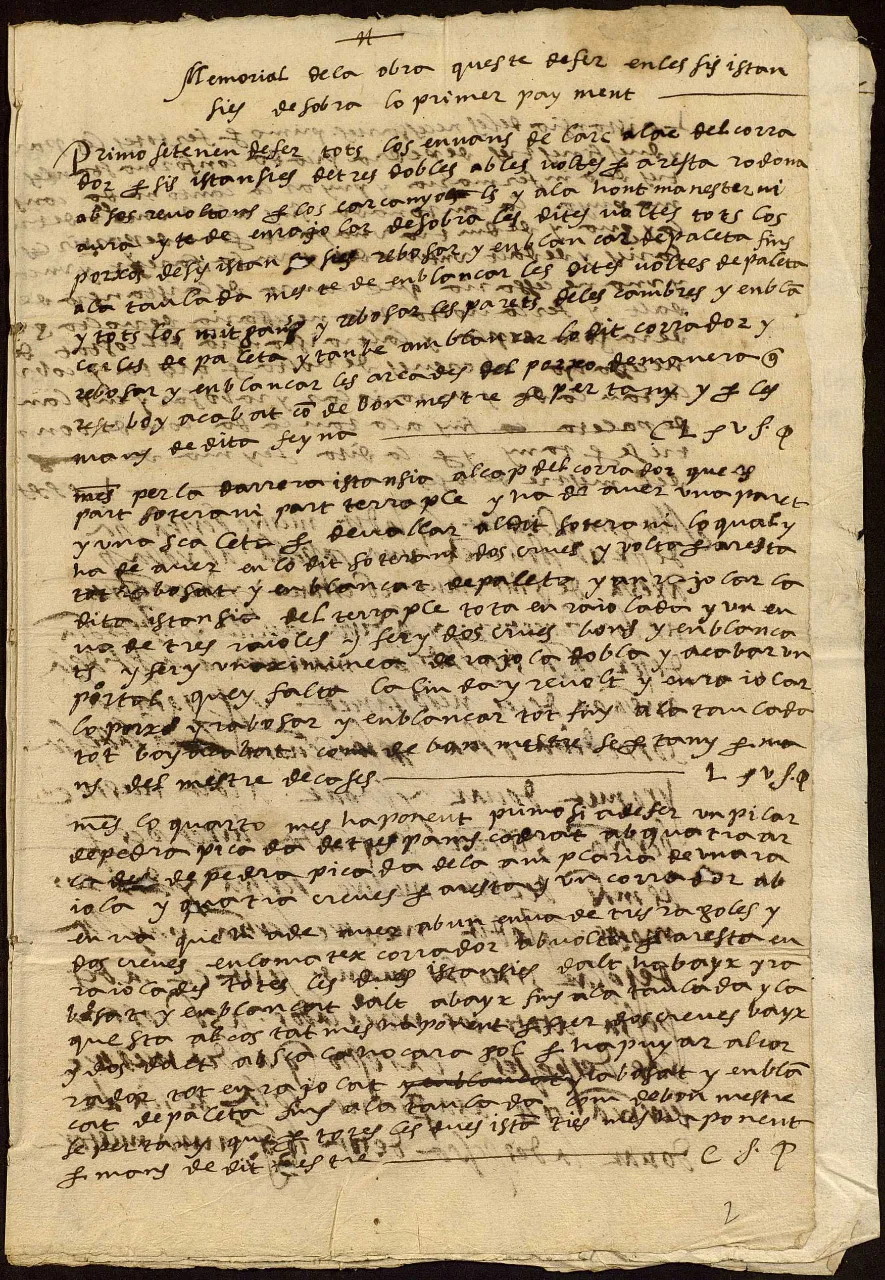 Memorial dela obra ques te de fer en les sis istan
sies de sobra lo primer payment
Primo se tenen de fer tots los envans de larc alac del corra
dor per sis istansies de tres dobles ab les voltes per aresta rodona
ab sos revoltons per los carcanyols y ala hont manester ni
aura y te de enrajolar de sobra les dites voltes tots los
porxos de sis istansies rebosar y enblancar de paleta fins
ala taulada mes te de enblancar les dites voltes de paleta
y tots los mitpans y rebosar les parets deles cambres y enblā
car les de paleta y tanbe amblancar lo dit corrador y
rebosar y enblancar les arcades del porxo de manera q
rest boy acabat cō de bon mestre se per tany y per les
mans de dita feyna L
mes per la darrera istansia al cap del corrador que es
part soterani part terraple y na de aver una paret
y una scaleta per devallar al dit soterani lo qual y
ha de aver en lo dit soterani dos creues y volta per aresta
tot rebosat y enblancat de paleta y anrajolar la
dita istansia del terraple tota enraiolada y un en
va de tres raioles y fer y dos creues bons y enblanca
ts y fer y una ximinea de rajola dobla y acabar un
portal quey falta la linda y revolt y enraiolar
lo porxo y rabosar y enblancar tot fins ala taulada
tot boy acabat com de bon mestre se per tany per ma
ns del mestre de cases L
mes lo quarto mes ha ponent primo si a de fer un pilar
de pedra picada de tres pams cadrat ab quatra ar
cades de pedra picada dela amplaria de una ra
iola y quatra creues per aresta y un corrador ab
en va que n a de aver ab un enva de tres ragoles y
dos creues en lo matex corrador ab volta per aresta en
raiolades totes les dues istansies dalt habayx y ra
bosar y enblancat dalt abayx fins ala taulada y la
questa al costat mes ha ponent fer dos creues bayx
y dos dalt ab sca caragol per ha puyar al cor
rador tot en rajolat y rabosat y enblā
cat de paleta fins ala taulada com de bon mestre
se per tany que per totes les dues istāties mes ha ponent
per mans de dit mestre C
2